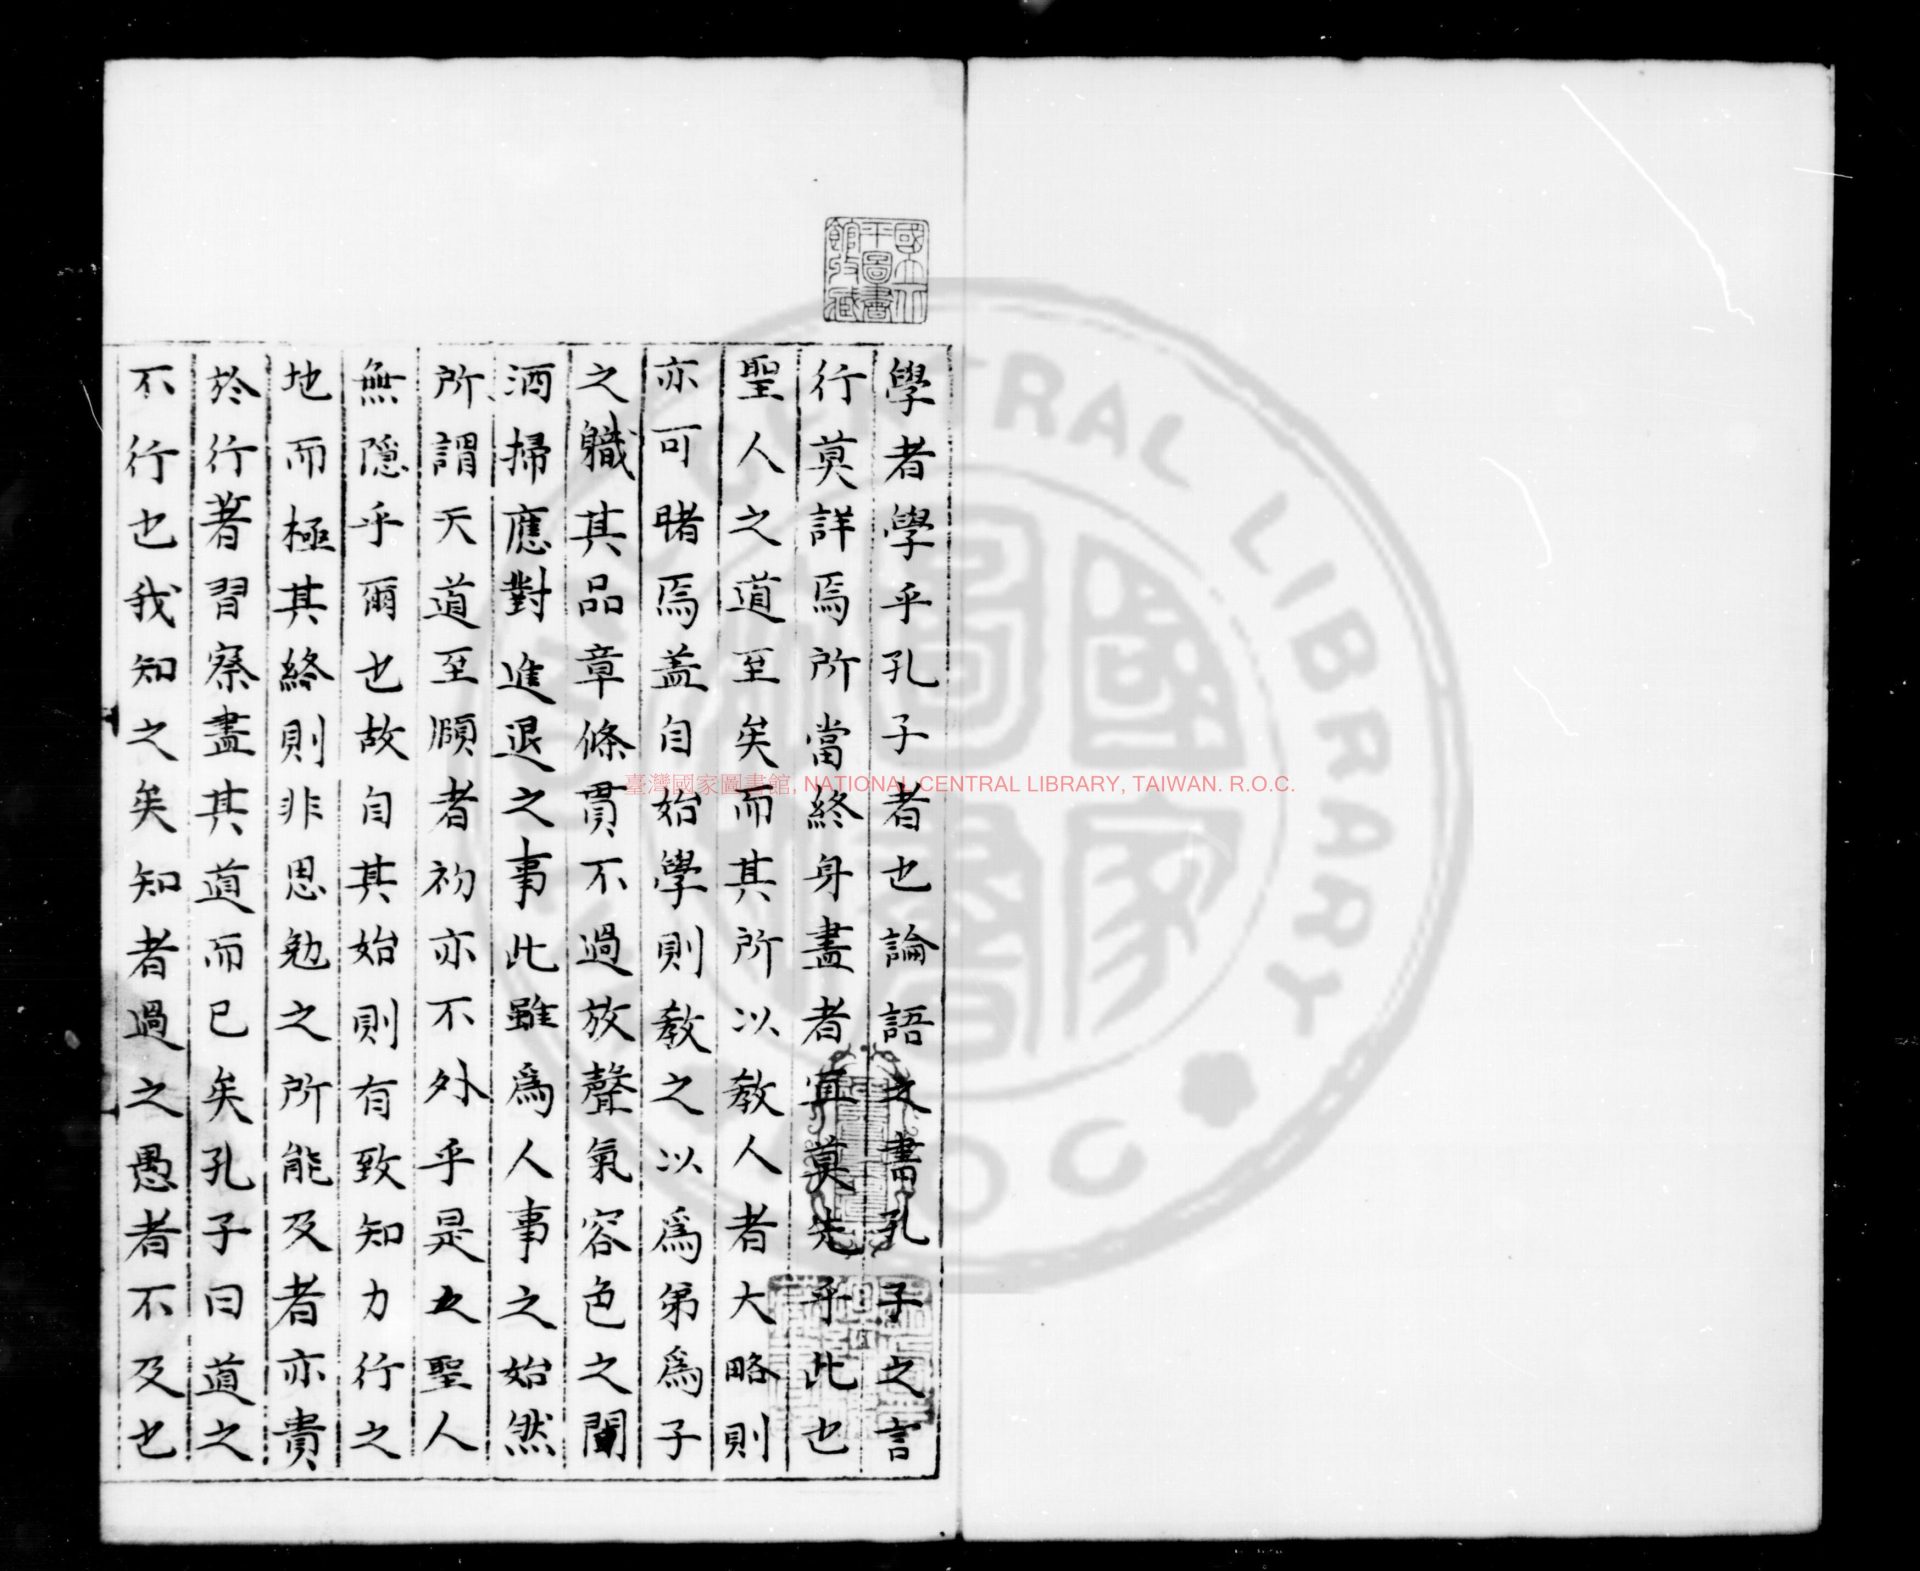 國立北
平圖書
館收藏
學者學乎孔子者也論語之書孔子之言
行莫詳焉所當終身盡者宜莫先乎此也
聖人之道至矣而其所以教人者大略則
亦可睹焉蓋自始學則教之以爲弟爲子
之職其品章條貫不過於聲氣容色之間
洒掃應對進退之事此雖爲人事之始然
所謂天道至賾者初亦不外乎是之聖人
無隱乎爾也故自其始則有致知力行之
地而極其終則非思勉之所能及者亦貴
於行著習察盡其道而已矣孔子曰道之
不行也我知之矣知者過之愚者不及也
臺灣國家圖書館, NATIONAL CENTRAL LIBRARY, TAIWAN. R.O.C.
國家圖書
CENTRAL LIBRARY